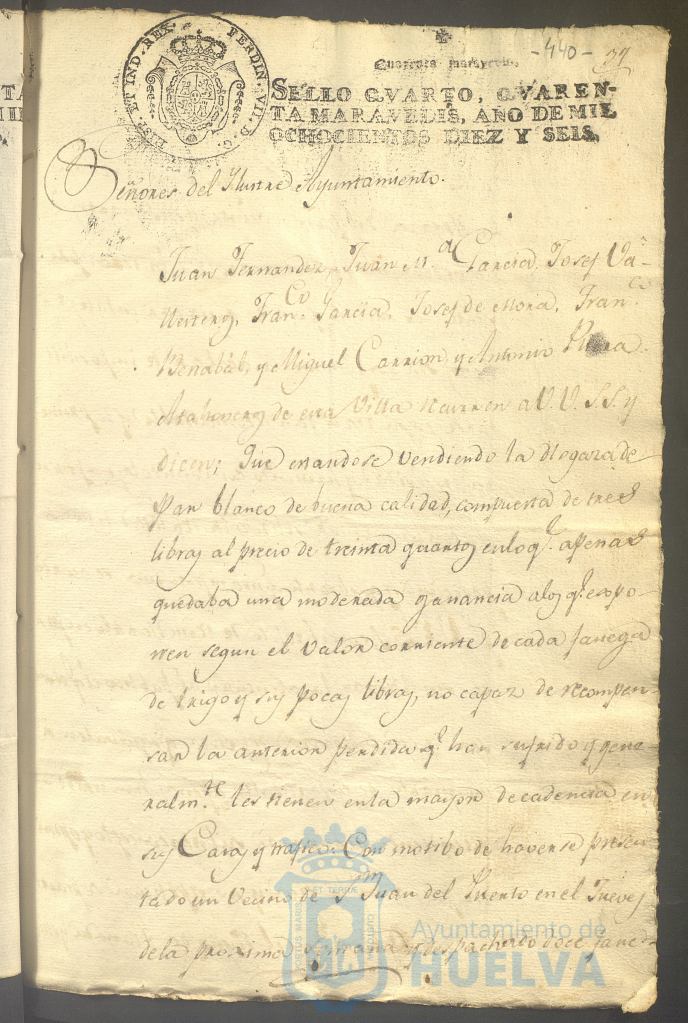 -440- 39
Quarenta maravedis.
HISP. ET IND. REX. FERDIN. VII. D. G.
SELLO QVARTO, QVAREN-
TA MARAVEDIS, AÑO DE MIL
OCHOCIENTOS DIEZ Y SEIS.
Señores del Ylustre Ayuntamiento.
Juan Fernandez, Juan M.ª Garcia, Josef Va-
llestero, Fran.co Garcia, Josef de Mora, Fran.co
Benabat, y Miguel Carrion, y Antonio
Atahoneros de esta Villa recurren a V.V. S.S. y
dicen; Que estandose vendiendo la Hogaza de
Pan blanco de buena calidad, compuesta de tres
libras al precio de treinta quartos en lo q.e apenas
quedaba una moderada ganancia a los q.e expo-
nen segun el valor corriente de cada fanega
de trigo y sus pocas libras, no capaz de recompen-
sar la anterior perdida q.e han sufrido y gene-
ralm.te les tienen en la mayor decadencia en
sus Casas y trafico. Con motibo de haverse presen-
tado un Vecino de S.n Juan del Puerto en el Jueves
de la proxima semana y despachado doce fane-
Ayuntamiento de
HUELVA